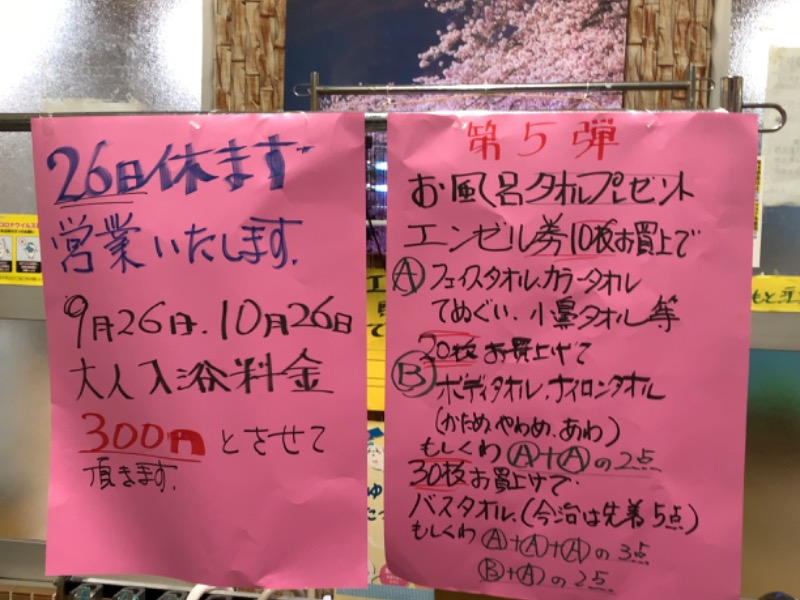 26日休まず
営業いたします。
9月26日、10月26日
大人入浴料金
300円とさせて
頂きます。
第5弾
お風呂タオルプレゼント
エンゼル券10枚お買上で
Ⓐフェイスタオル、カラータオル
てぬぐい、小鼻タオル等
20枚お買上げで
Ⓑボディタオル、ナイロンタオル
(かため、やわめ、あわ)
もしくわⒶ+Ⓐの2点
30枚お買上げで
バスタオル、(今治は先着5点)
もしくわⒶ+Ⓐ+Ⓐの3点
Ⓑ+Ⓐの2点